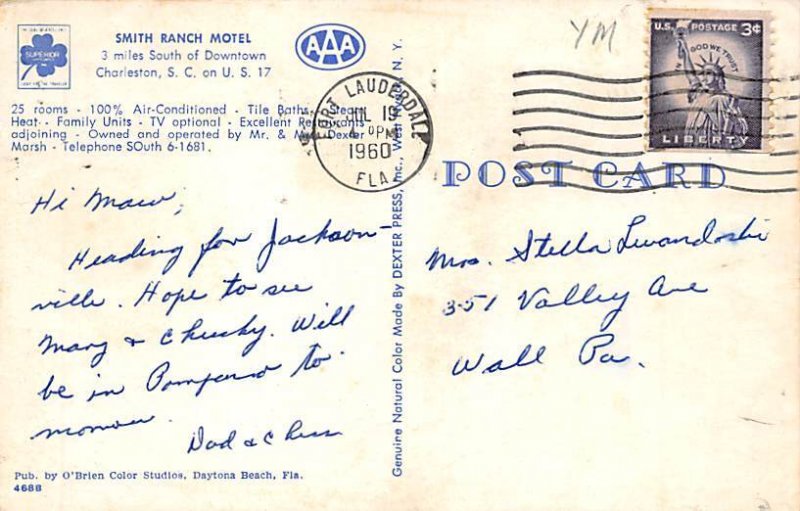 SMITH RANCH MOTEL
3 miles South of Downtown
Charleston, S. C. on U. S. 17
SUPERIOR
AAA
25 rooms - 100% Air-Conditioned - Tile Baths - Steam
Heat - Family Units - TV optional - Excellent Restaurants
adjoining - Owned and operated by Mr. & Mrs. Dexter
Marsh - Telephone SOuth 6-1681.
FORT LAUDERDALE
JUL 19
PM
1960
FLA.
YM
U.S. POSTAGE 3¢
IN GOD WE TRUST
LIBERTY
POST CARD
Hi Maw,
Heading for Jackson-
ville. Hope to see
Mary & Chucky. Will
be in Pompano to-
morrow.
Dad & Chess
Mrs. Stella Lewandoski
351 Valley Ave
Wall Pa.
Genuine Natural Color Made By DEXTER PRESS, Inc., West Nyack, N. Y.
Pub. by O'Brien Color Studios, Daytona Beach, Fla.
4688